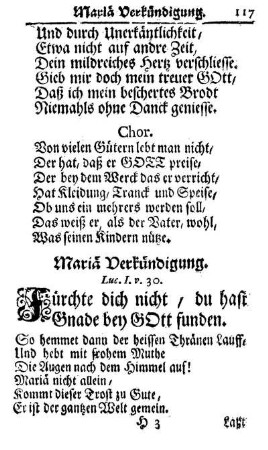 Mariä Verkündigung. 117
Und durch Unerkäntlichkeit,
Etwa nicht auf andre Zeit,
Dein mildreiches Hertz verschliesse.
Gieb mir doch mein treuer GOtt,
Daß ich mein beschertes Brodt
Niemahls ohne Danck geniesse.
Chor.
Von vielen Gütern lebt man nicht,
Der hat, daß er GOTT preise,
Der bey dem Werck das er verricht,
Hat Kleidung, Tranck und Speise,
Ob uns ein mehrers werden soll,
Das weiß er, als der Vater, wohl,
Was seinen Kindern nütze.
Mariä Verkündigung.
Luc. I. v. 30.
Fürchte dich nicht / du hast
Gnade bey GOtt funden.
So hemmet dann der heissen Thränen Lauff-
Und hebt mit frohem Muthe
Die Augen nach dem Himmel auf!
Mariä nicht allein,
Kommt dieser Trost zu Gute,
Er ist der gantzen Welt gemein.
H 3 Laßt